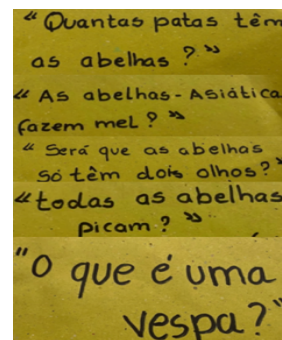 “ Quantas patas têm
as abelhas ? ”
“ As abelhas - Asiática
fazem mel ? ”
“ Será que as abelhas
só têm dois olhos? ”
“ todas as abelhas
picam ? ”
"O que é uma
vespa?"